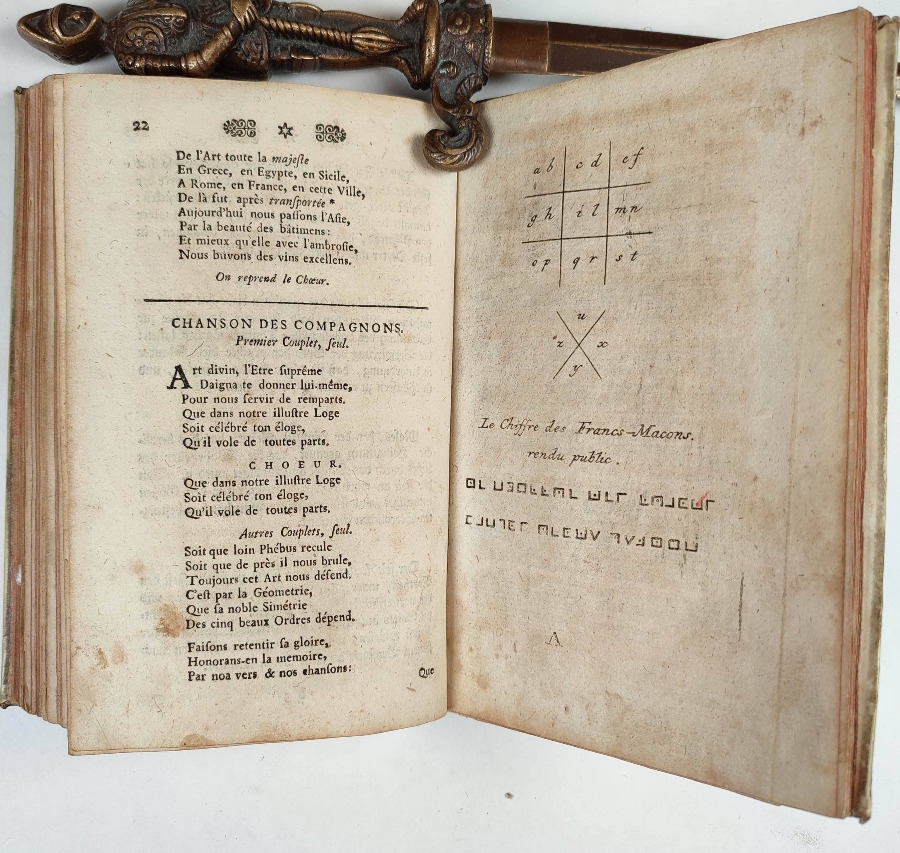 22
De l'Art toute la majeſte
En Grece, en Egypte, en Sicile,
A Rome, en France, en cette Ville,
De là fut après tranſportée *
Aujourd'hui nous paſſons l'Aſie,
Par la beauté des bâtimens:
Et mieux qu'elle avec l'ambroſie,
Nous buvons des vins excellens.
On reprend le Chœur.
CHANSON DES COMPAGNONS.
Premier Couplet, ſeul.
Art divin, l'Etre ſuprême
Daigna te donner lui-même,
Pour nous ſervir de remparts.
Que dans notre illuſtre Loge
Soit célébré ton éloge,
Qu'il vole de toutes parts.
CHOEUR.
Que dans notre illuſtre Loge
Soit célébré ton éloge,
Qu'il vole de toutes parts.
Autres Couplets, ſeul.
Soit que loin Phébus recule
Soit que de près il nous brule,
Toujours cet Art nous défend.
C'eſt par la Géometrie,
Que ſa noble Simétrie
Des cinq beaux Ordres dépend.
Faiſons retentir ſa gloire,
Honorans-en la memoire,
Par noa vers & nos chanſons:
Que
ab cd ef
gh il mn
op qr st
u
z x
y
Le Chiffre des Francs-Macons.
rendu public.
A